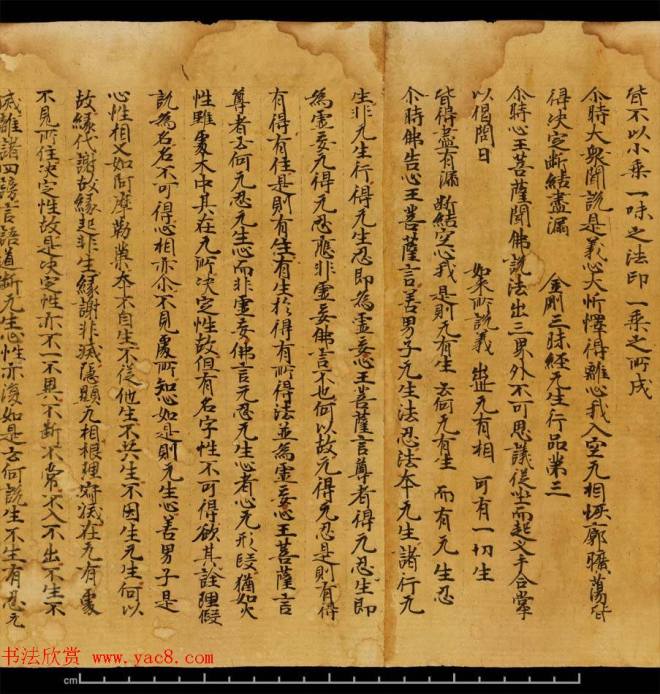 皆不以小乘一味之法印一乘之所成
尒時大衆聞說是義心大忻懌得離心我入空无相恢廓曠蕩皆
得決定斷結盡漏　金剛三昧經无生行品第三
尒時心王菩薩聞佛說法出三界外不可思議從坐而起叉手合掌
以偈問曰　如來所說義　出世无有相　可有一切生
皆得盡有漏　斷結空心我　是則无有生　云何无有生　而有无生忍
尒時佛告心王菩薩言善男子无生法忍法本无生諸行无
生非无生行得无生忍即為虛妄心王菩薩言尊者得无忍生即
為虛妄无得无忍應非虛妄佛言不也何以故无得无忍是則有得
有得有住是則有生有生於得有所得法並為虛妄心王菩薩言
尊者云何无忍无生心而非虛妄佛言无忍无生心者心无形段猶如火
性雖處木中其在无所決定性故但有名字性不可得欲其詮理假
說為名名不可得心相亦尒不見處所知心如是則无生心善男子是
心性相又如阿摩勒菓本不自生不從他生不共生不因生无生何以
故緣代謝故緣起非生緣謝非滅隱顯无相根理寂滅在无有處
不見所住決定性故是決定性亦不一不異不斷不常不入不出不生不
滅離諸四謗言語道斷无生心性亦復如是云何說生不生有忍无
书法欣赏 www.yac8.com
cm